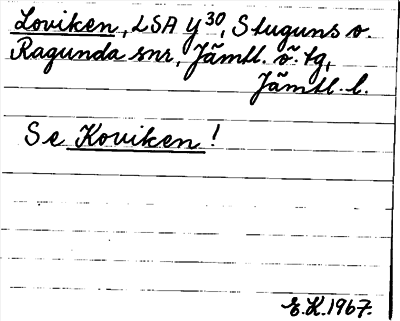 Loviken, LSA y³⁰, Stuguns o.
Ragunda snr, Jämtl. ö. tg,
Jämtl. l.
Se Koviken!
E.K. 1967.